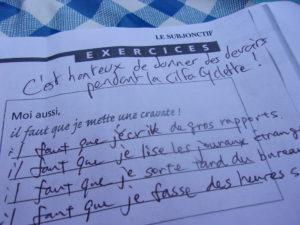 LE SUBJONCTIF
EXERCICES
C'est honteux de donner des devoirs
pendant la !
Moi aussi,
il faut que je mette une cravate !
il faut que j'écrive de gros rapports.
il faut que je lise les étrang
il faut que je sorte tard du bureau
il faut que je fasse des heures s